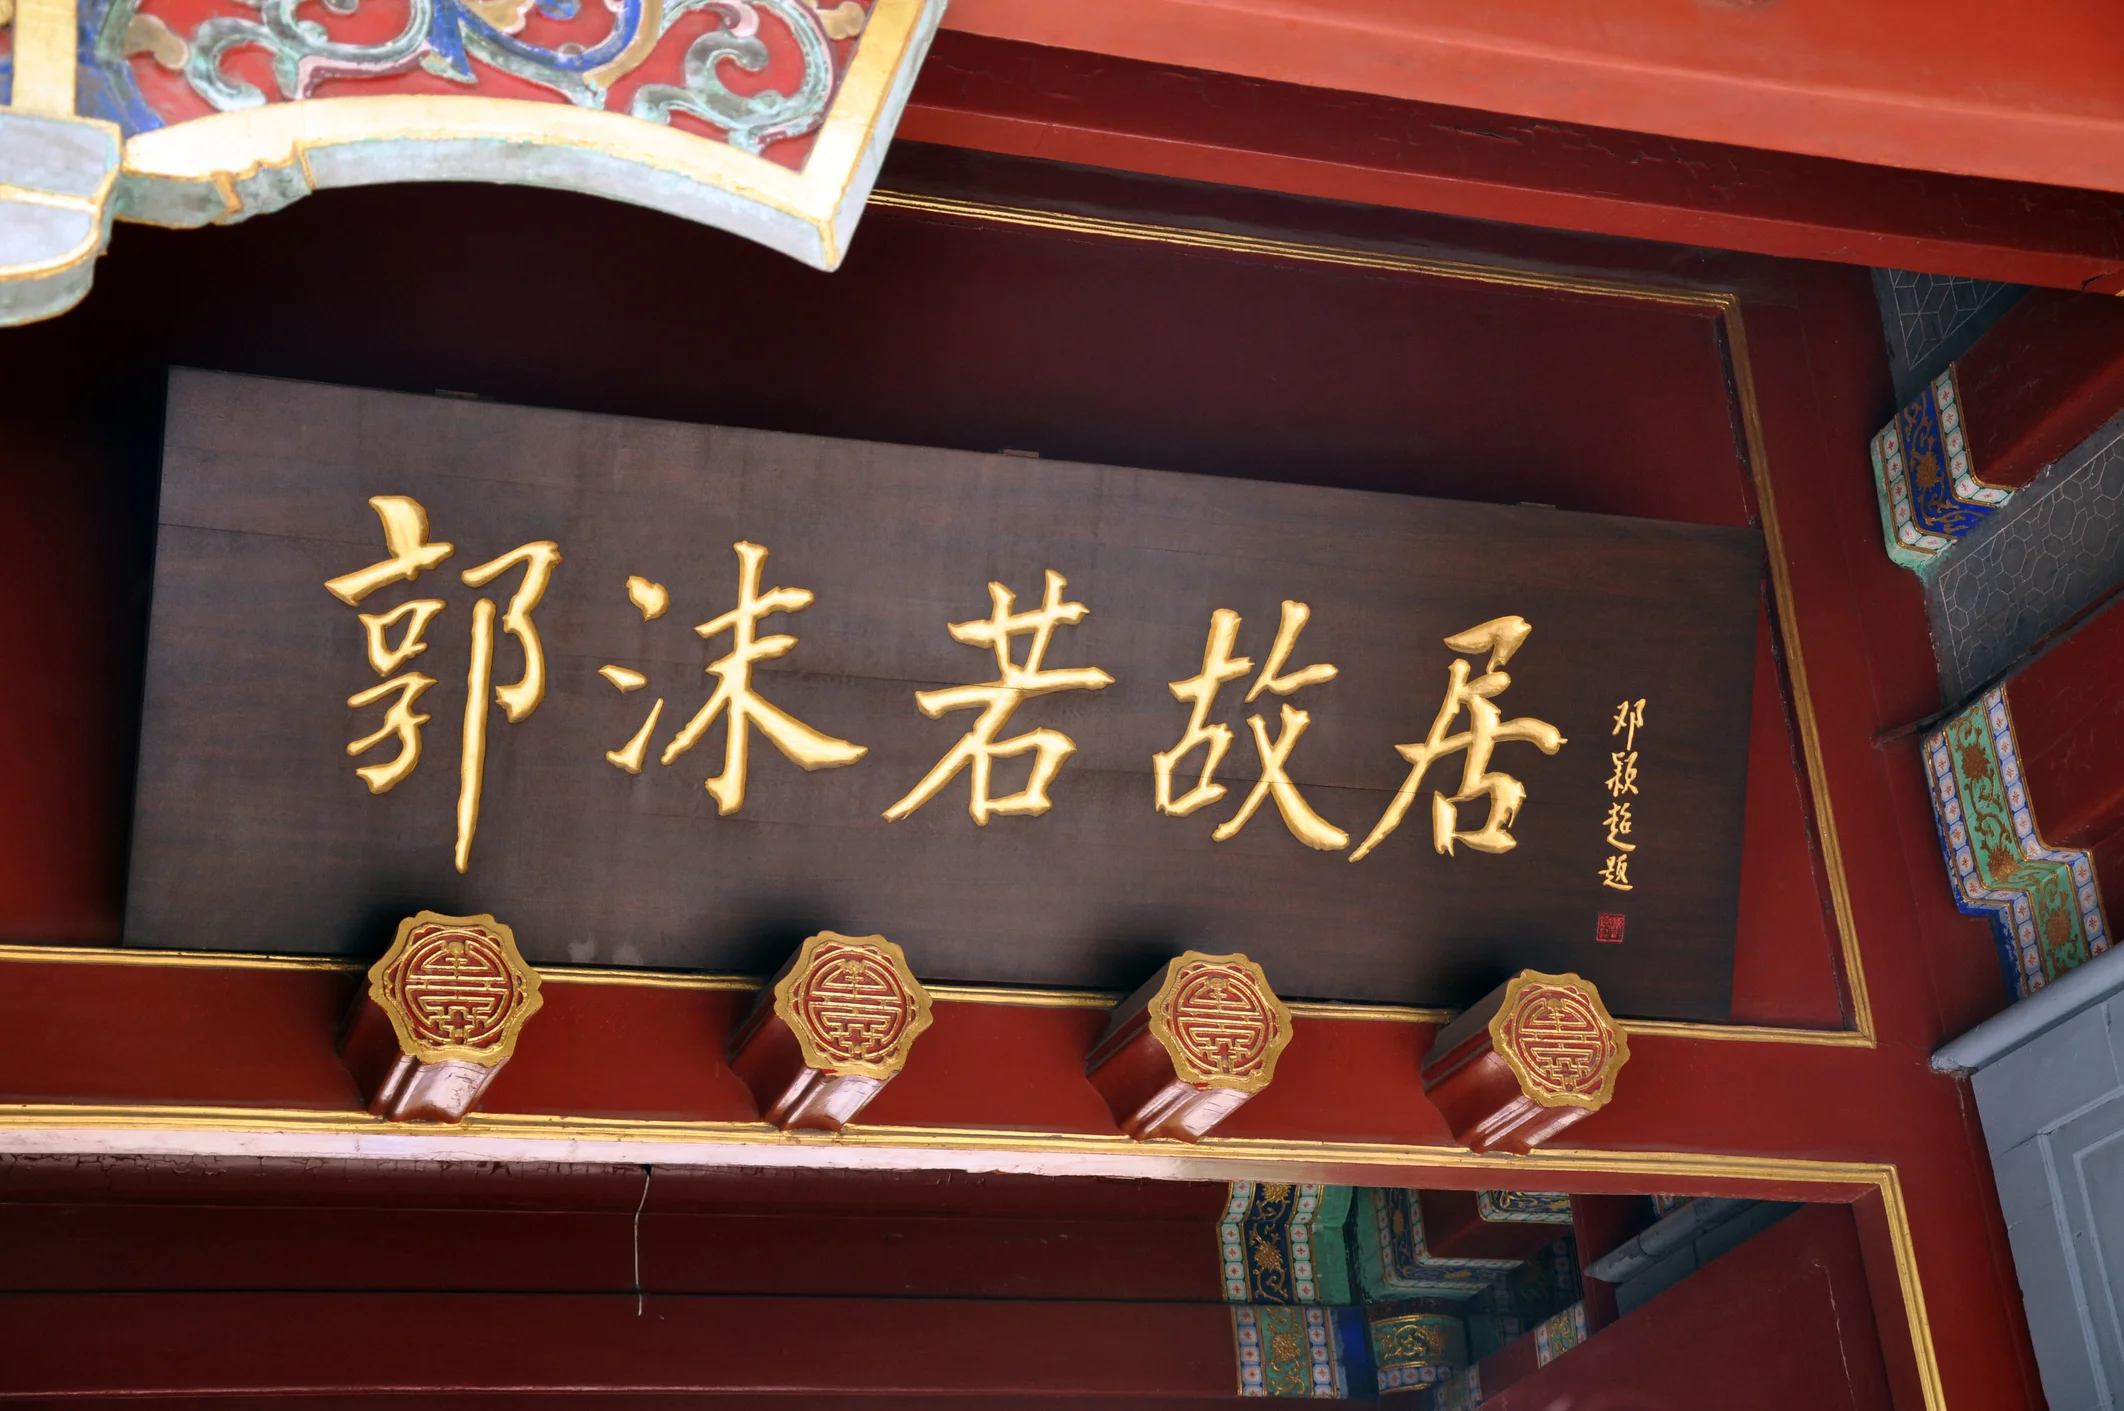 郭沫若故居
邓颖超题